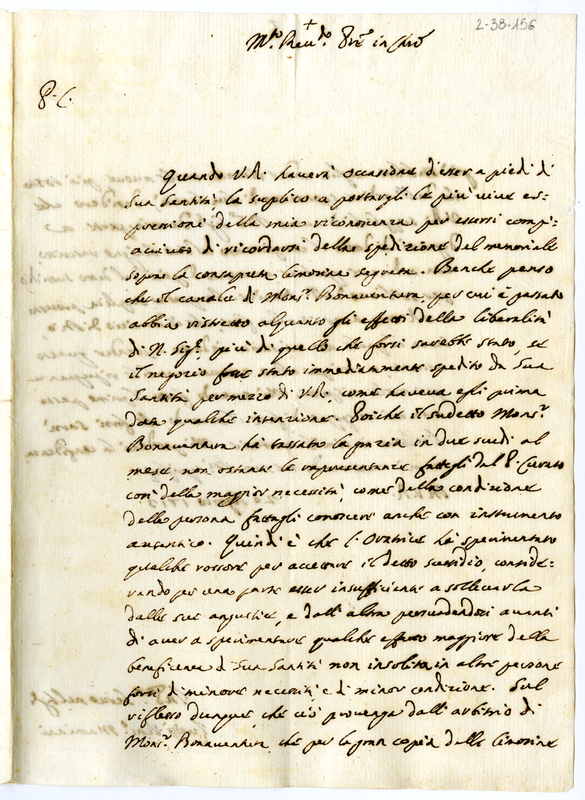 2-38-156
+
M.to Reu.do Pre in Chro
P. C.
Quando V.R. haverà occasione d'esser a piedi di
Sua Santità la suplico a portargli le più viue es-
pressioni della mia riconoscenza per essersi compi-
aciuto di ricordarsi della spedizione del memoriale
sopra la consaputa limosina segreta. Benche penso
che il canale di Mons.r Bonaventura, per cui è passato
abbia ristretto alquanto gli effetti della liberalità
di N. Sig.re più di quello che forsi sarebbe stato, se
il negozio fosse stato immediatamente spedito da Sua
Santità per mezzo di V.R. come haveva egli prima
data qualche intenzione. Poiche il sudetto Mons.r
Bonaventura hà tassato la grazia in due scudi al
mese, non ostante le rapresentanze fattegli dal P. Curato
così della maggior necessità, come della condizione
della persona fattagli conoscere anche con instrumento
autentico. Quindi è che l'Oratrice hà sperimentato
qualche rossore per accettare il detto sussidio, conside-
rando per una parte esser insufficiente a sollevarla
dalle sue angustie, e dall'altra persuadendosi auanti
di auer a sperimentare qualche effetto maggiore della
beneficenza di Sua Santità non insolita in altre persone
forsi di minore necessità e di minor condizione. Sul
riflesso dunque, che ciò provenga dall'arbitrio di
Mons.r Bonaventura, che per la gran copia delle limosine